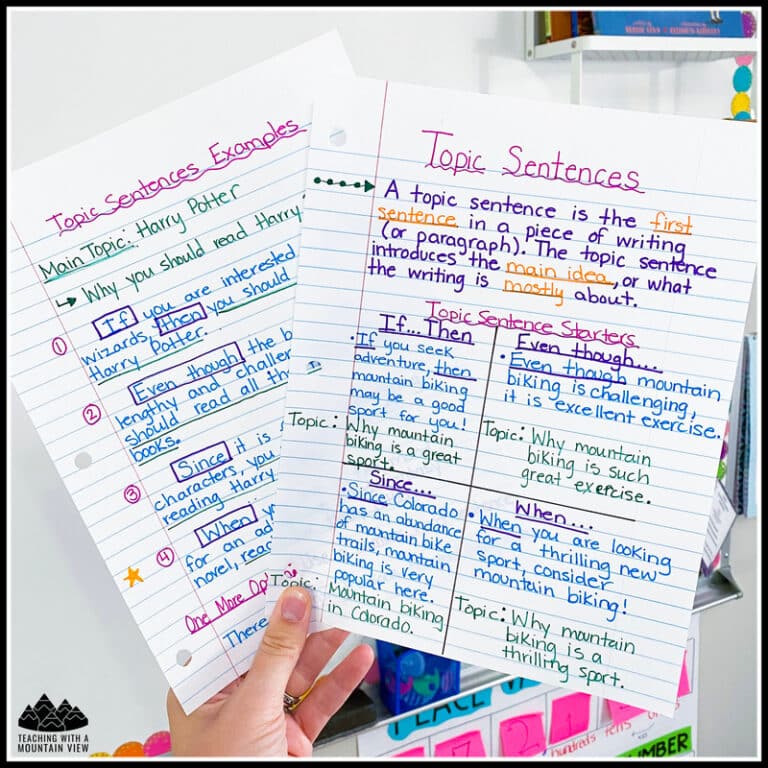 Topic Sentences Examples
Main Topic: Harry Potter
Why you should read Harry
1 If you are interested
wizards, then you should
Harry Potter.
2 Even though the b
lengthy and challe
should read all th
books.
3 Since it is
characters, you
reading Harry
4 When yo
for an ad
novel, read
One More Opti
There
Topic Sentences
A topic sentence is the first
sentence in a piece of writing
(or paragraph). The topic sentence
introduces the main idea, or what
the writing is mostly about.
Topic Sentence Starters
If...Then
• If you seek
adventure, then
mountain biking
may be a good
sport for you!
Topic: Why mountain
biking is a great
sport.
Even though....
• Even though mountain
biking is challenging,
it is excellent exercise.
Topic: Why mountain
biking is such
great exercise.
Since...
• Since Colorado
has an abundance
of mountain bike
trails, mountain
biking is very
popular here.
Topic: Mountain biking
in Colorado.
When...
• When you are looking
for a thrilling new
sport, consider
mountain biking!
Topic: Why mountain
biking is a
thrilling sport.
PLACE VA
hundreds tens
NUMBER
TEACHING WITH A
MOUNTAIN VIEW